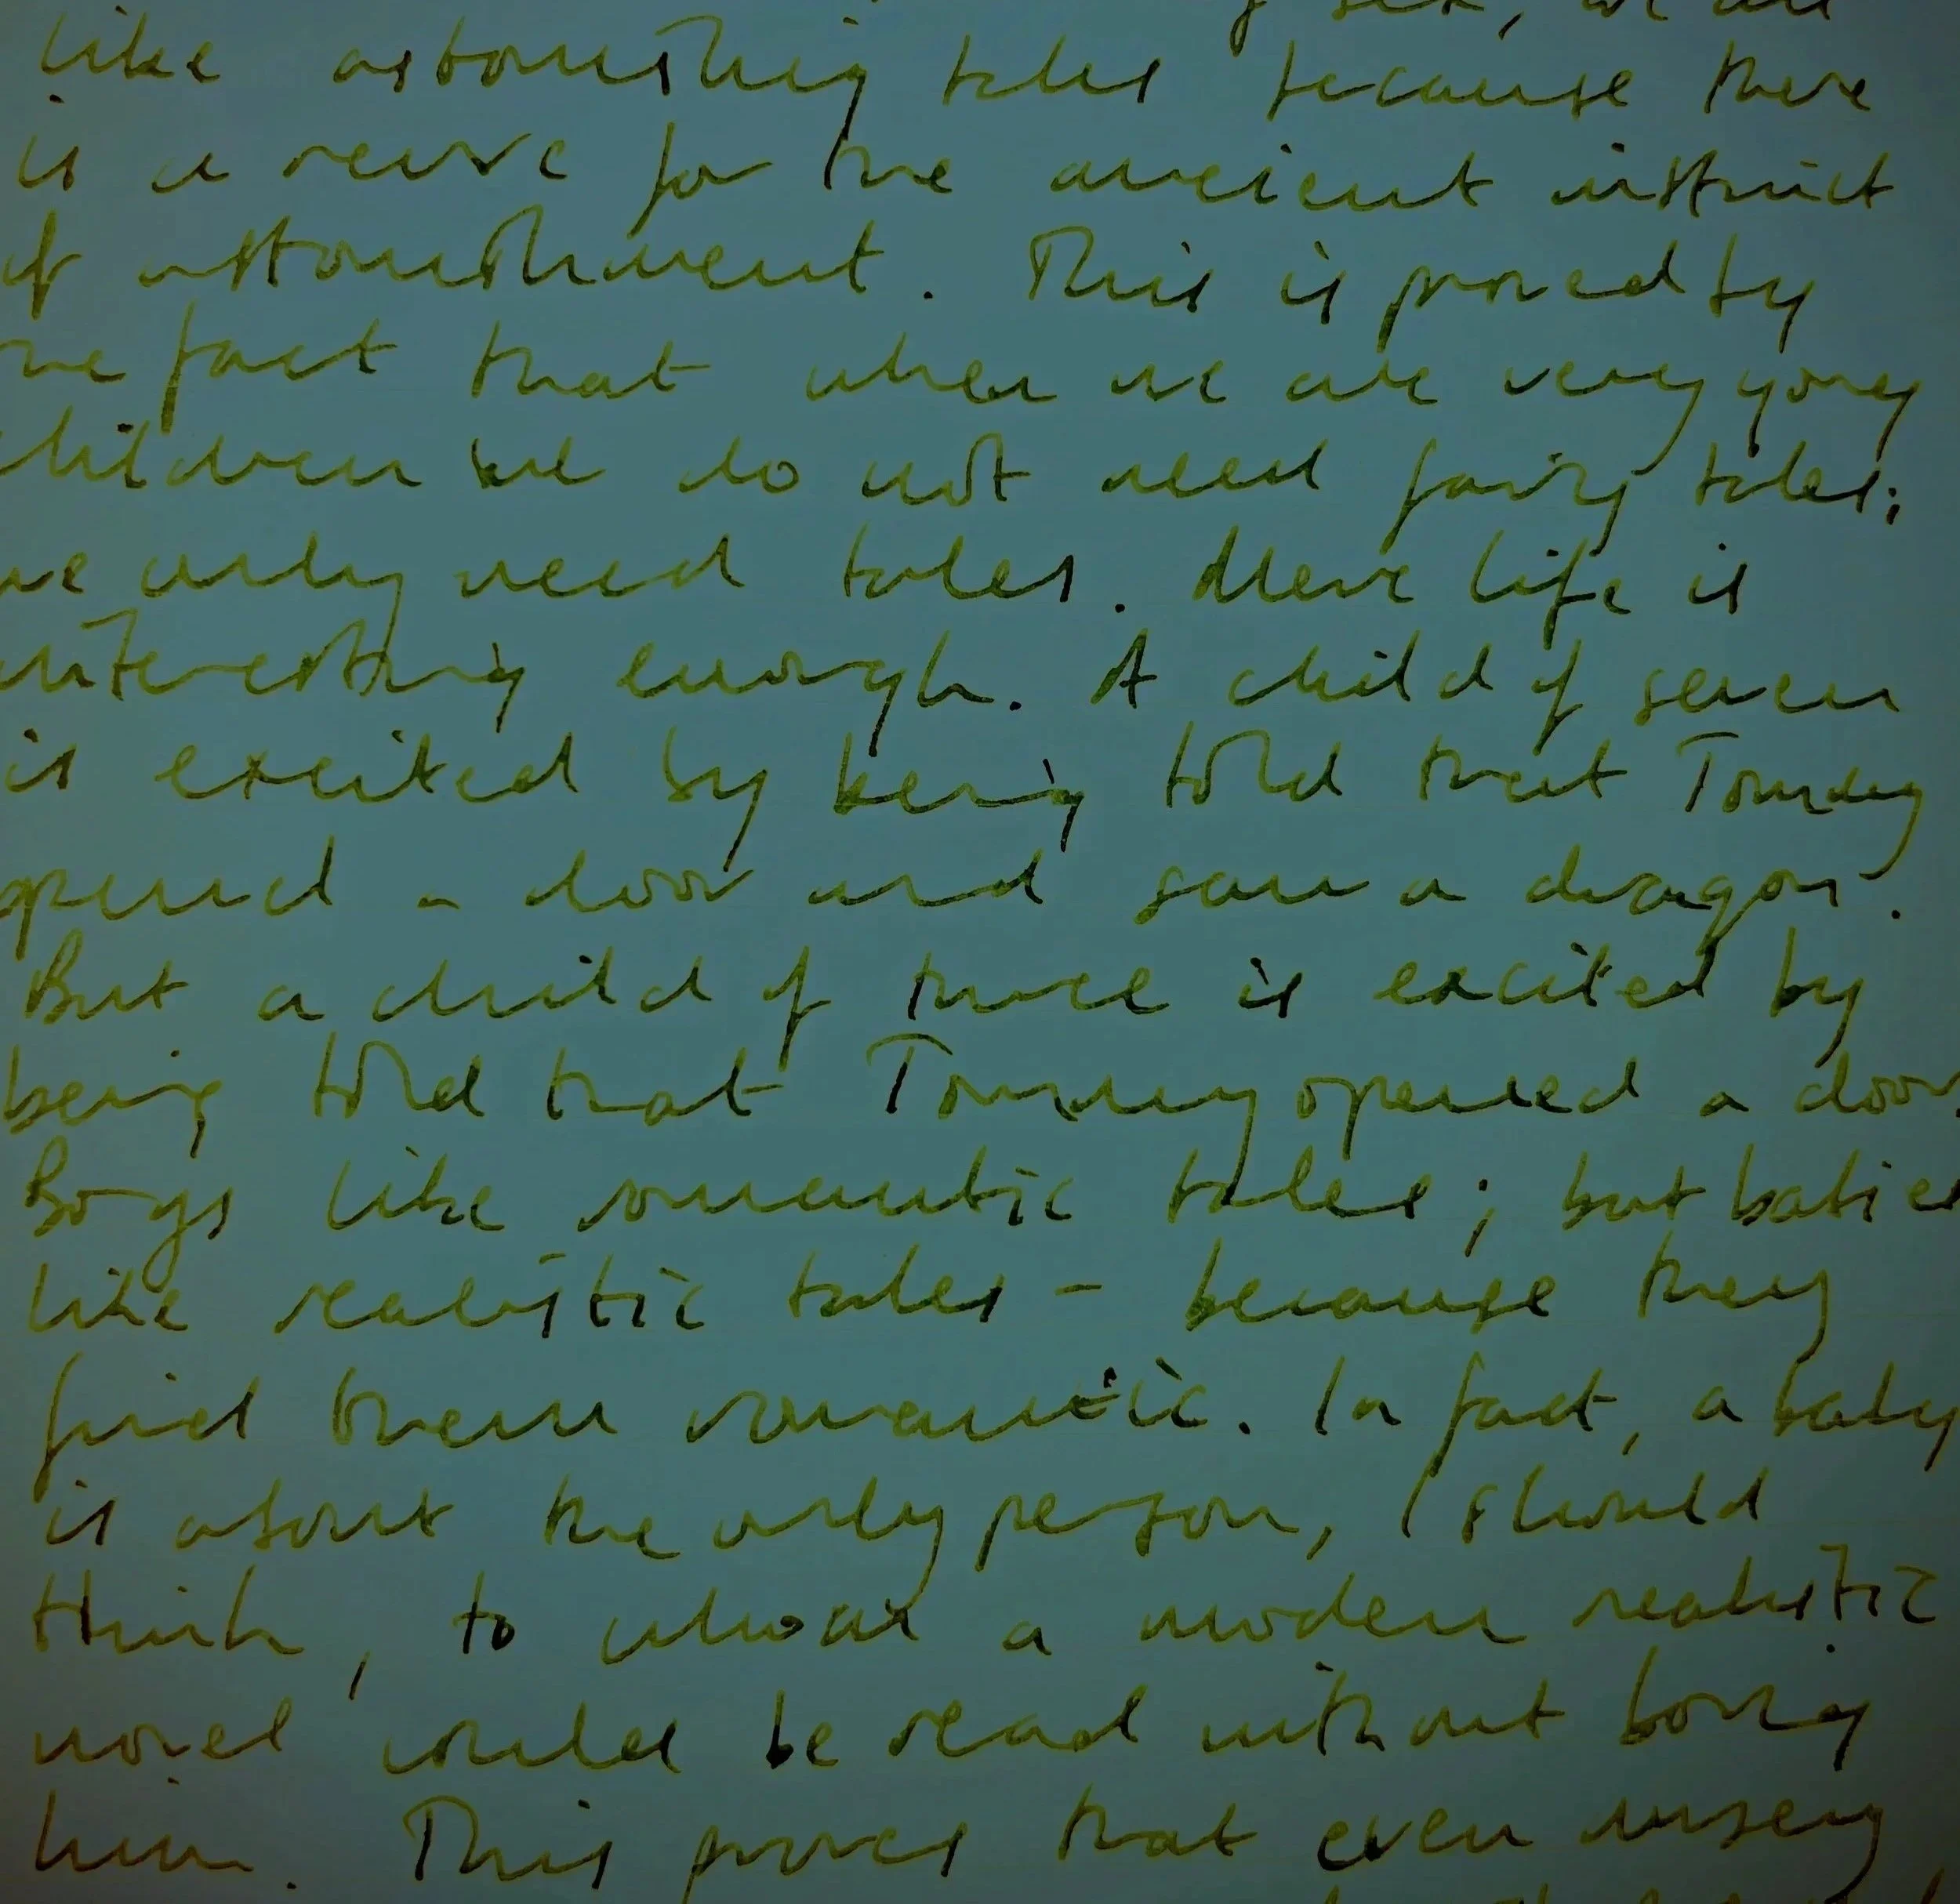 sex, we all
like astonishing tales because there
is a nerve for the ancient instinct
of astonishment. This is proved by
the fact that when we are very young
children we do not need fairy tales:
we only need tales. Mere life is
interesting enough. A child of seven
is excited by being told that Tommy
opened a door and saw a dragon.
But a child of three is excited by
being told that Tommy opened a door.
Boys like romantic tales; but babies
like realistic tales - because they
find them romantic. In fact, a baby
is about the only person, I should
think, to whom a modern realistic
novel could be read without boring
him. This proves that even nursery